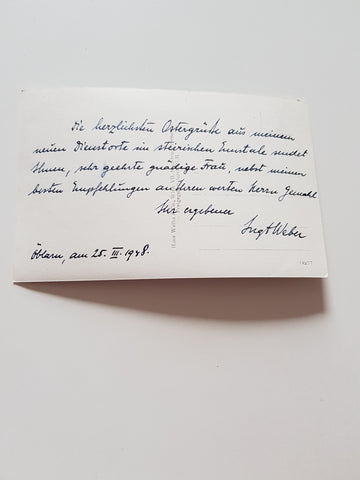 Die herzlichsten Ostergrüße aus meinem
neuen Dienstorte im steirischen Ennstale sendet
Ihnen, sehr geehrte gnädige Frau, nebst meinen
besten Empfehlungen an Ihren werten Herrn Gemahl
Ihr ergebener
Weber
Öblarn, am 25. III. 1948.